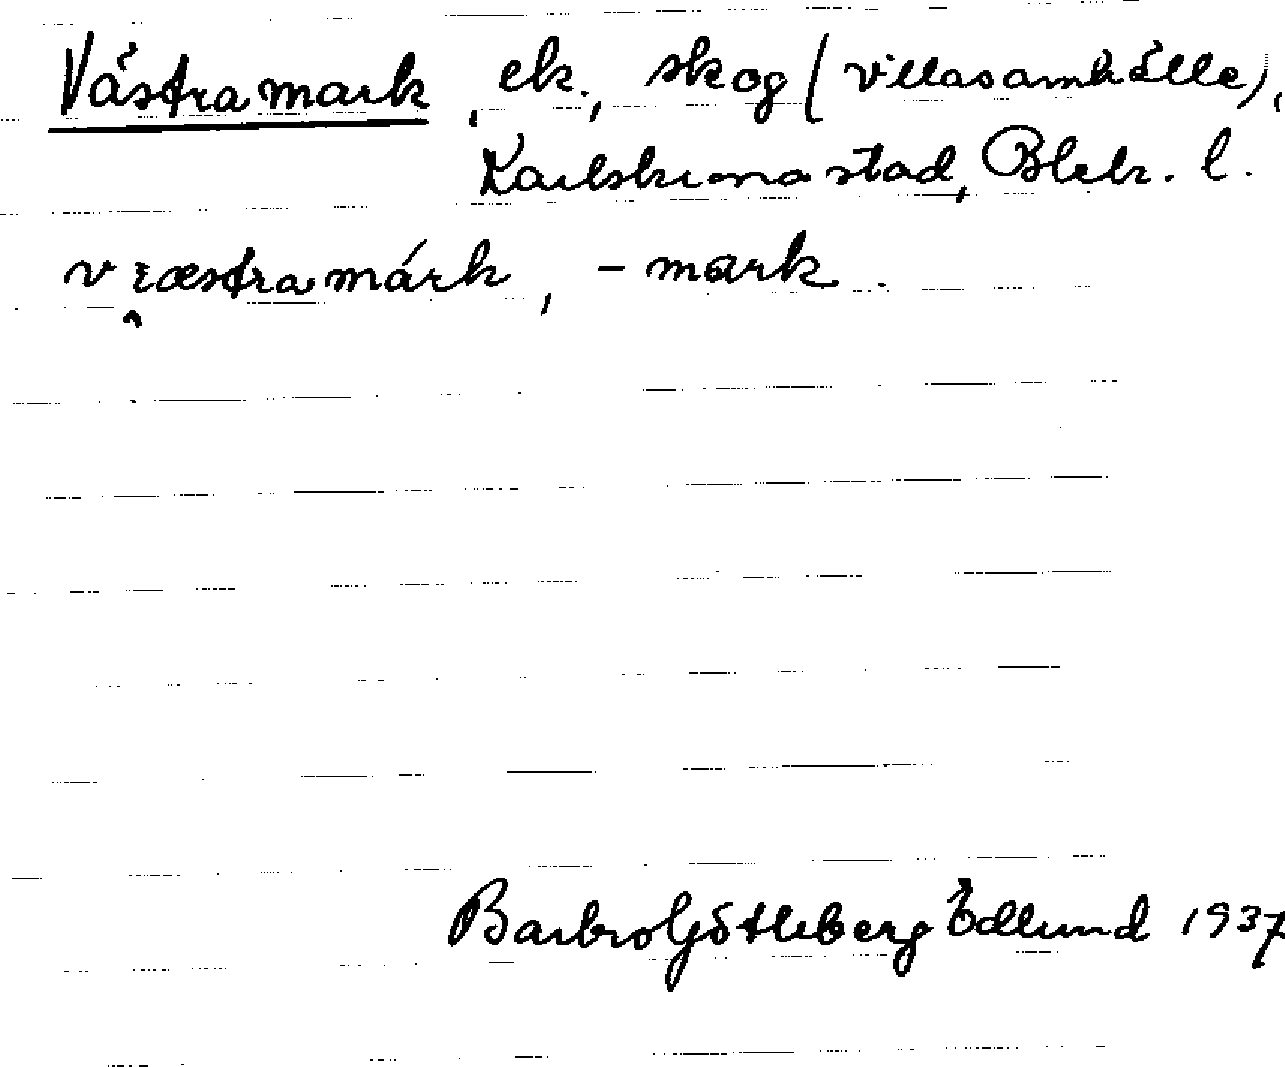 Västra mark, ek., skog (villasamhälle),
Karlskrona stad, Blek. l.
væstra márk, -mark.
Barbro Götleberg Edlund 1937